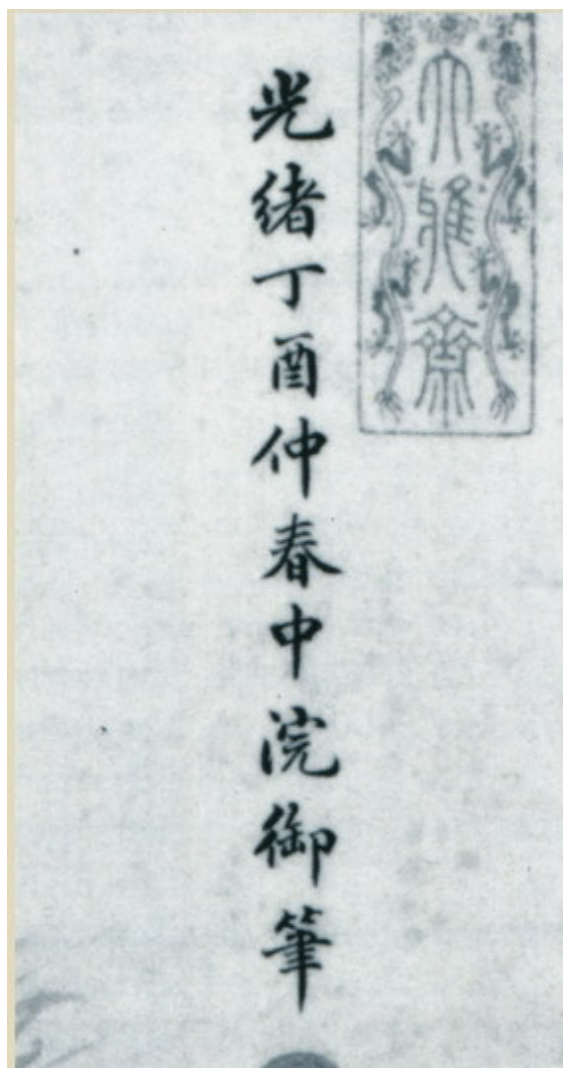 大雅齋
光緒丁酉仲春中浣御筆